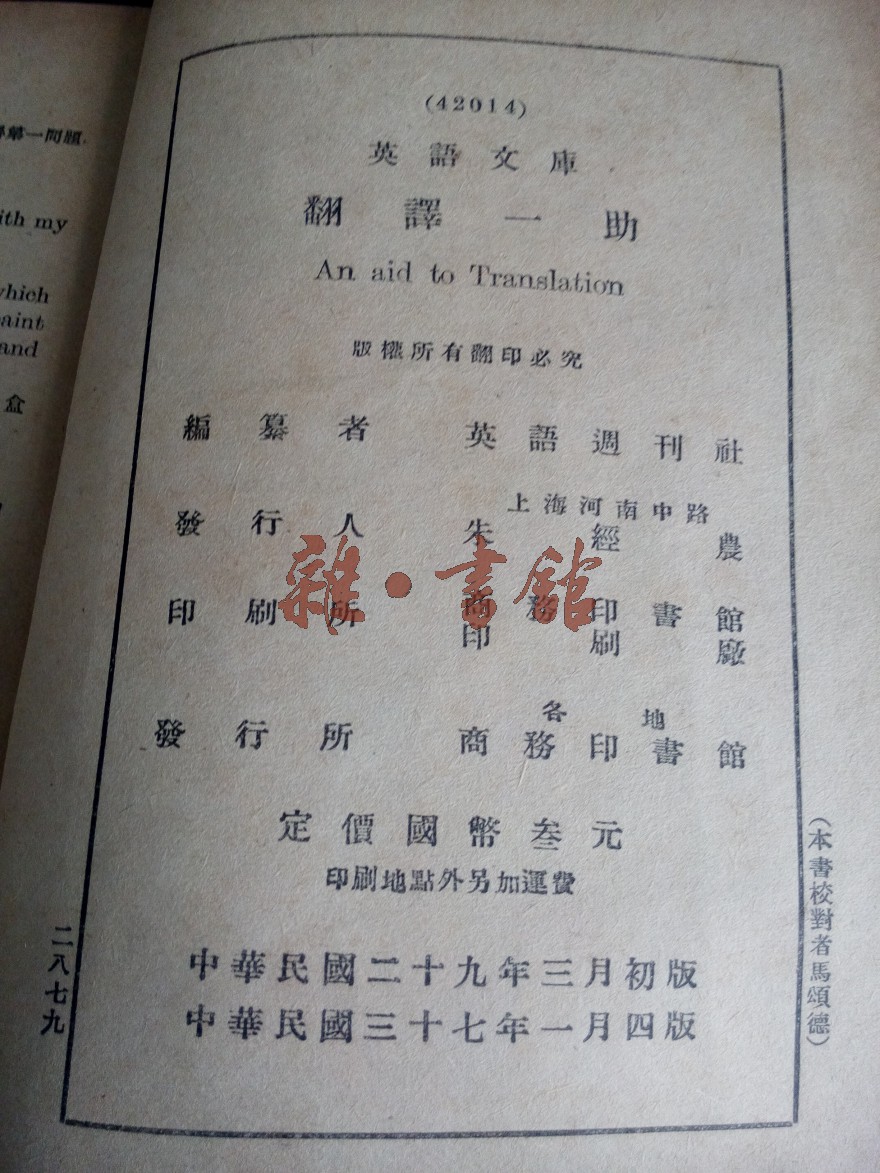 第一問題
ith my
which
aint
and
盒
(42014)
英語文庫
翻譯一助
An aid to Translation
版權所有翻印必究
編纂者 英語週刊社
上海河南中路
發行人 朱經農
印刷所 商務印書館
印刷廠
各地
發行所 商務印書館
定價國幣叁元
印刷地點外另加運費
中華民國二十九年三月初版
中華民國三十七年一月四版
二八七九
(本書校對者馬頌德)
雜·書館